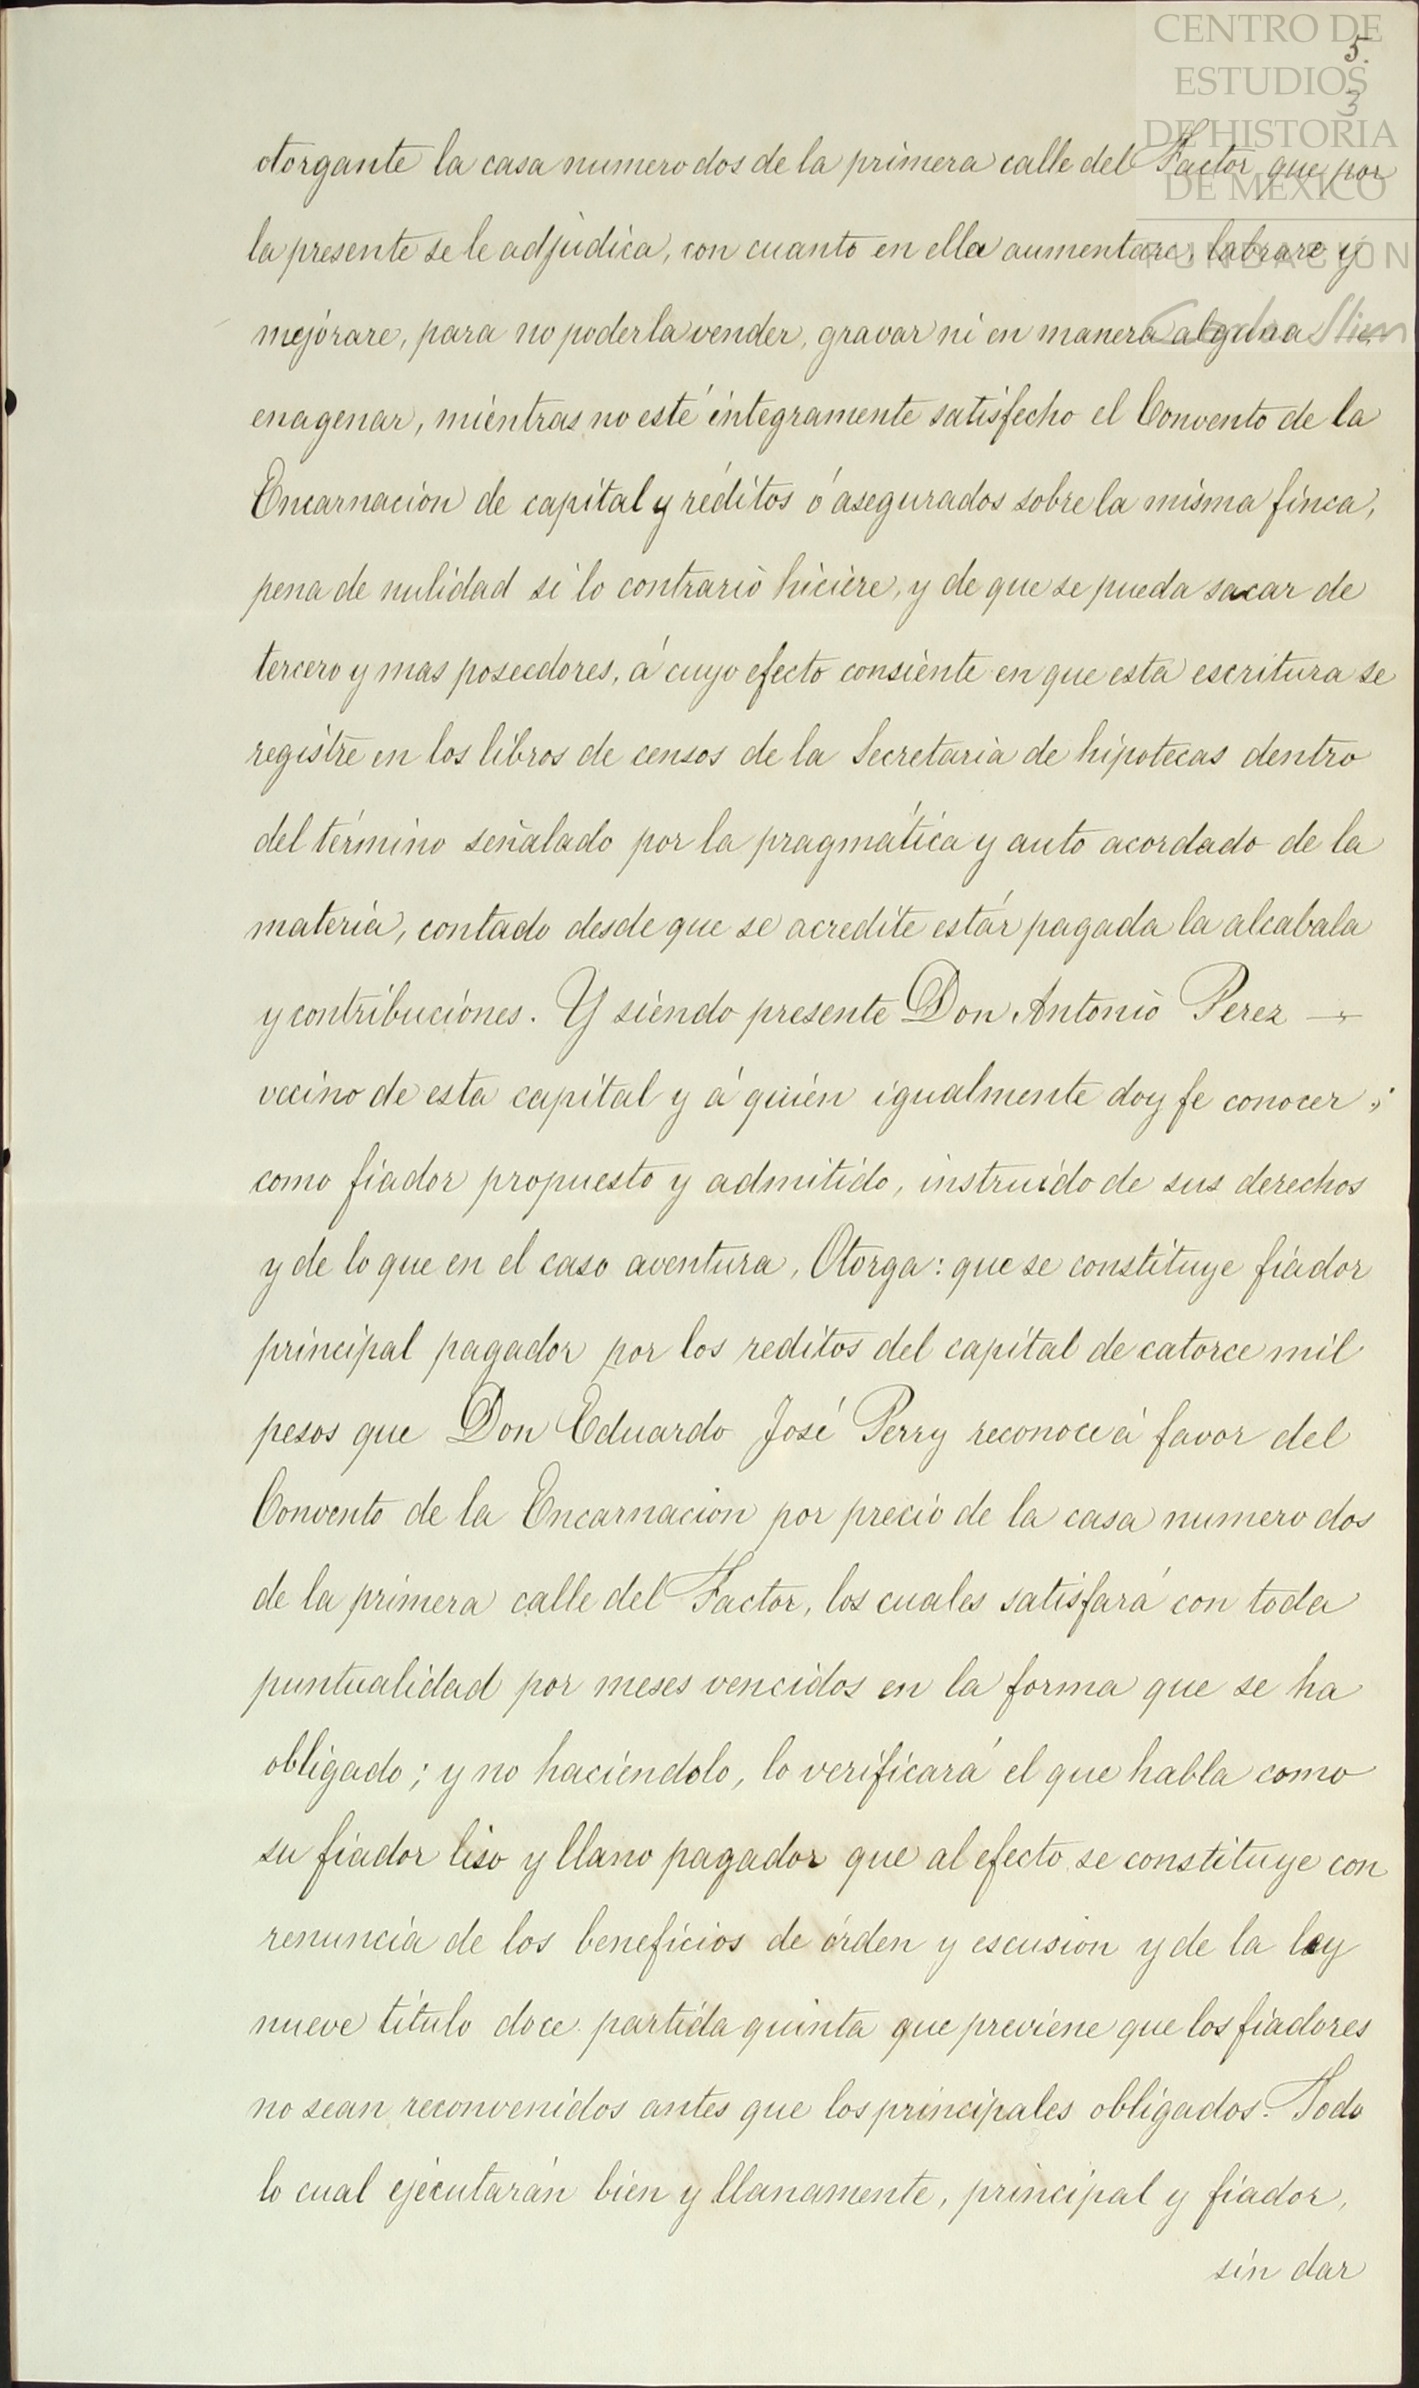 CENTRO DE
5.
ESTUDIOS
3
DE HISTORIA
DE MÉXICO
FUNDACIÓN
Carlos Slim
otorgante la casa numero dos de la primera calle del Factor, que por
la presente se le adjudica, con cuanto en ella aumentare, labrare y
mejorare, para no poderla vender, gravar ni en manera alguna
enagenar, mientras no esté íntegramente satisfecho el Convento de la
Encarnacion de capital y réditos ó asegurados sobre la misma finca,
pena de nulidad si lo contrario hiciere, y de que se pueda sacar de
tercero y mas poseedores, á cuyo efecto consiente en que esta escritura se
registre en los libros de censos de la Secretaria de hipotecas dentro
del término señalado por la pragmática y auto acordado de la
materia, contado desde que se acredite estár pagada la alcabala
y contribuciones. Y siendo presente Don Antonio Perez —
vecino de esta capital y á quien igualmente doy fe conocer,
como fiador propuesto y admitido, instruido de sus derechos
y de lo que en el caso aventura, Otorga: que se constituye fiador
principal pagador por los reditos del capital de catorce mil
pesos que Don Eduardo José Perry reconoce á favor del
Convento de la Encarnacion por precio de la casa numero dos
de la primera calle del Factor, los cuales satisfará con toda
puntualidad por meses vencidos en la forma que se ha
obligado; y no haciéndolo, lo verificará el que habla como
su fiador liso y llano pagador que al efecto se constituye con
renuncia de los beneficios de órden y escusion y de la ley
nueve título doce partida quinta que previene que los fiadores
no sean reconvenidos antes que los principales obligados. Todo
lo cual ejecutarán bien y llanamente, principal y fiador,
sin dar